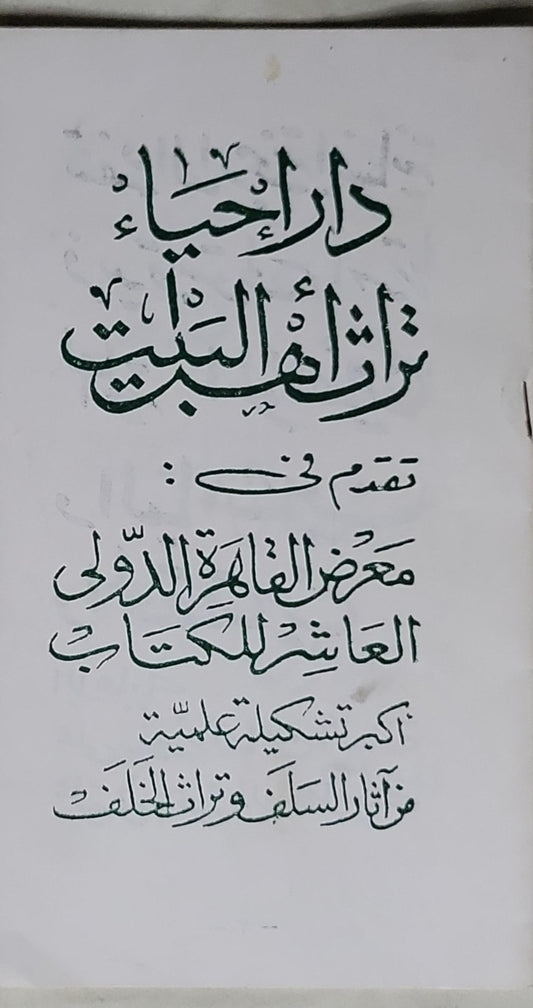 دار إحياء
تراث أهل البيت
تقدم في :
مَعرَض القاهِرَة الدّولى
العَاشِر للكتَاب
أكبر تشكيلة علميّة
من آثار السلَف وتراث الخلَف